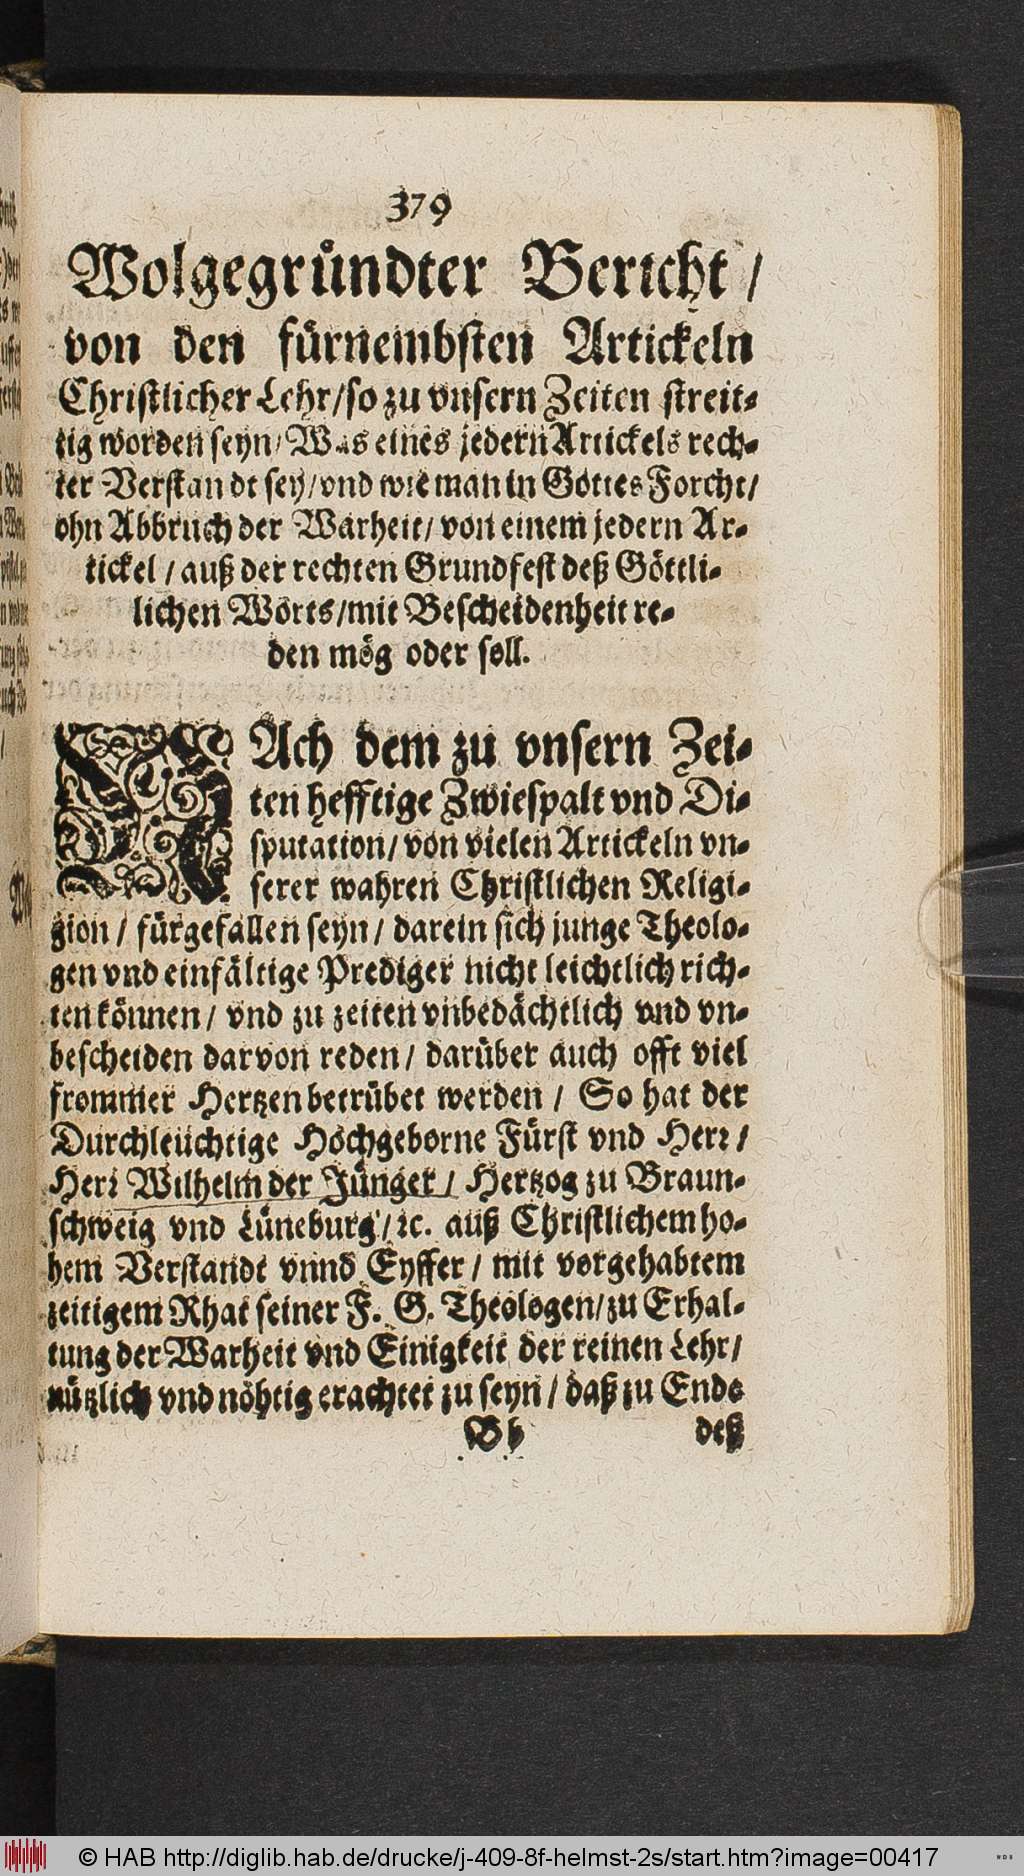 379
Wolgegründter Bericht /
von den fürnembsten Artickeln
Christlicher Lehr / so zu vnsern Zeiten streit-
tig worden seyn / Was eines jedern Artickels rech-
ter Verstandt sey / vnd wie man in Gottes Forcht /
ohn Abbruch der Warheit / von einem jedern Ar-
tickel / auß der rechten Grundfest deß Göttli-
lichen Worts / mit Bescheidenheit re-
den mög oder soll.
NAch dem zu vnsern Zei-
ten hefftige Zwiespalt vnd Di-
sputation / von vielen Artickeln vn-
serer wahren Christlichen Religi-
gion / fürgefallen seyn / darein sich junge Theolo-
gen vnd einfältige Prediger nicht leichtlich rich-
ten können / vnd zu zeiten vnbedächtlich vnd vn-
bescheiden darvon reden / darüber auch offt viel
frommer Hertzen betrübet werden / So hat der
Durchleuchtige Hochgeborne Fürst vnd Herr /
Herr Wilhelm der Jünger / Hertzog zu Braun-
schweig vnd Lüneburg / ꝛc. auß Christlichem ho-
hem Verstande vnnd Eyffer / mit vorgehabtem
zeitigem Rhat seiner F. G. Theologen / zu Erhal-
tung der Warheit vnd Einigkeit der reinen Lehr /
nützlich vnd nöhtig erachtet zu seyn / daß zu Ende
Bb deß
© HAB http://diglib.hab.de/drucke/j-409-8f-helmst-2s/start.htm?image=00417